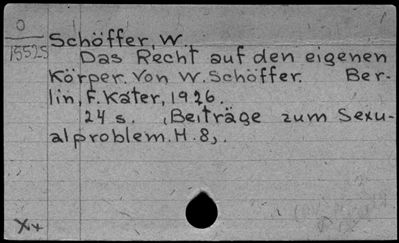 O
15525
Schöffer, W.
Das Recht auf den eigenen
Körper. Von W. Schöffer. Ber-
lin, F. Kater, 1926.
24 s. (Beiträge zum Sexu-
alproblem. H. 8,).
X+